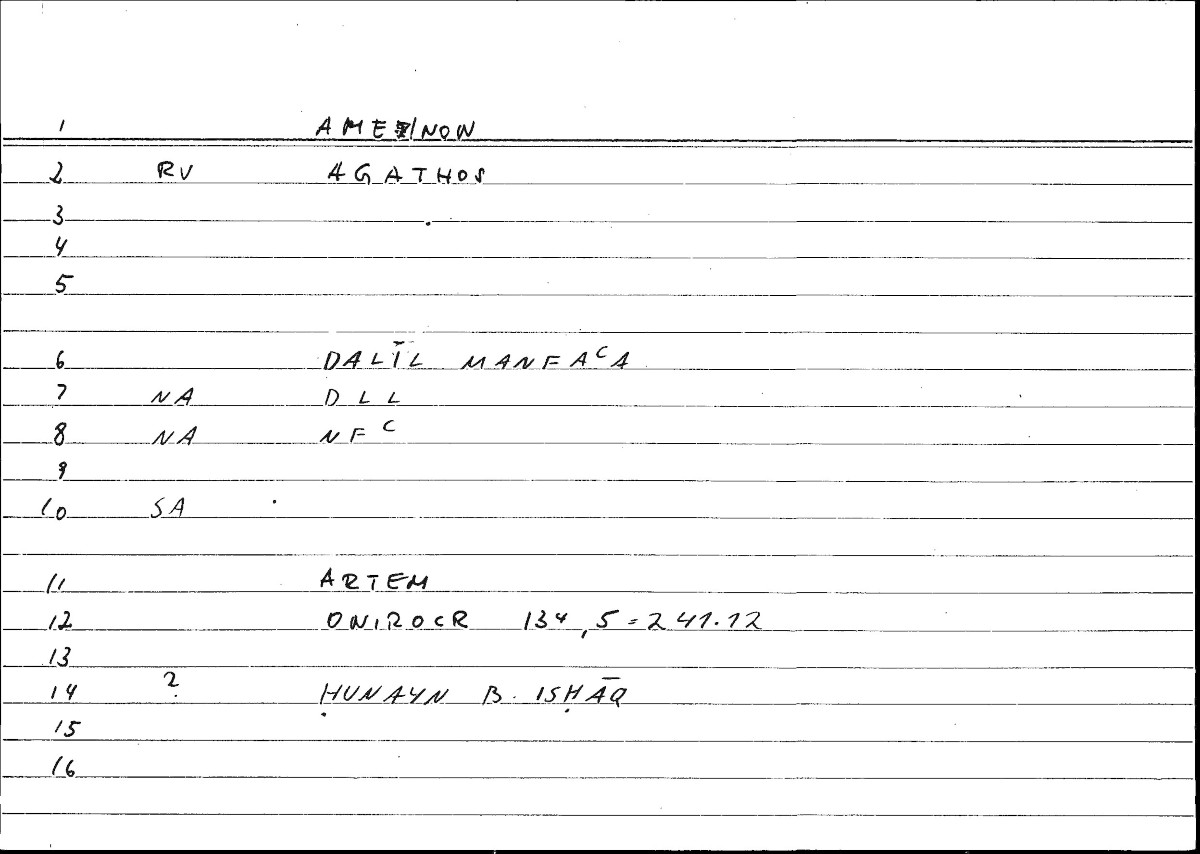 1 AMEI/NON
2 RV AGATHOS
3
4
5
6 DALĪL MANFAᶜA
7 NA DLL
8 NA NFᶜ
9
10 SA
11 ARTEM
12 ONIROCR 134,5=241.12
13
14 ? ḤUNAYN B. ISḤĀQ
15
16